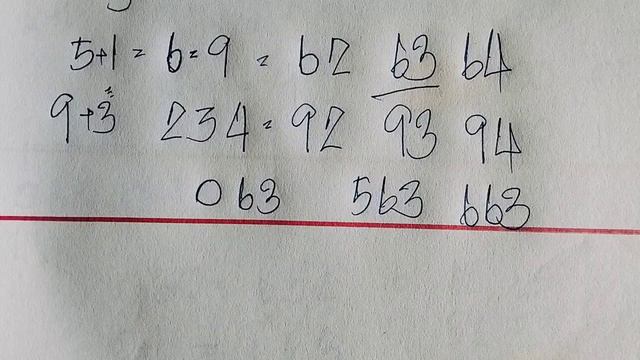 5+1 = 6 = 9 = 62 63 64
9+3 = 234 = 92 93 94
063 563 663